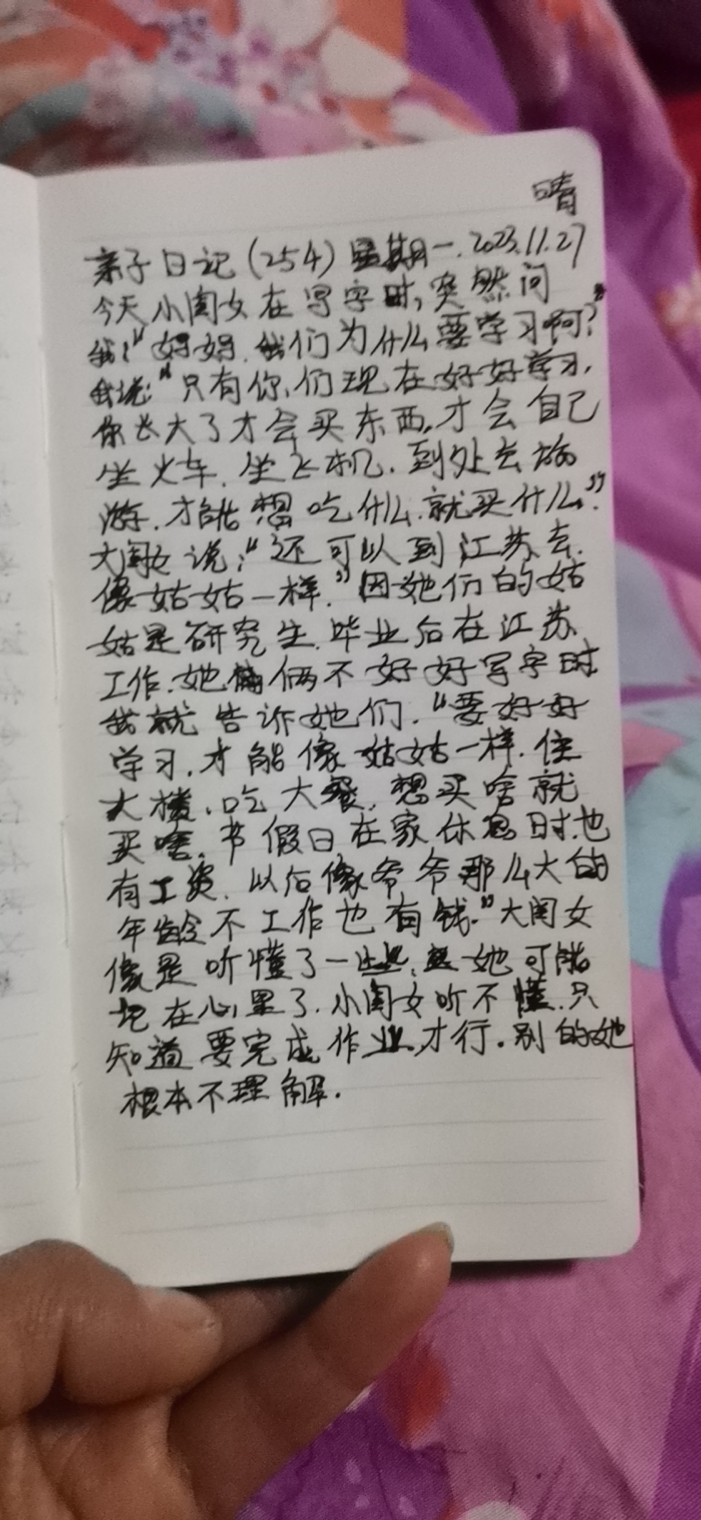 晴
亲子日记(254)星期一.2023.11.27
今天小闺女在写字时,突然问
我:“妈妈.我们为什么要学习啊?”
我说:“只有你们现在好好学习,
你长大了才会买东西,才会自己
坐火车.坐飞机.到处去旅
游.才能想吃什么.就买什么.”
大闺女说:“还可以到江苏去.
像姑姑一样.”因她们的姑
姑是研究生.毕业后在江苏
工作.她俩不好好写字时
我就告诉她们.“要好好
学习.才能像姑姑一样.住
大楼.吃大餐.想买啥就
买啥.节假日在家休息时.也
有工资.以后像爷爷那么大的
年龄不工作也有钱.”大闺女
像是听懂了一些,她可能
记在心里了.小闺女听不懂.只
知道要完成作业才行.别的她
根本不理解.